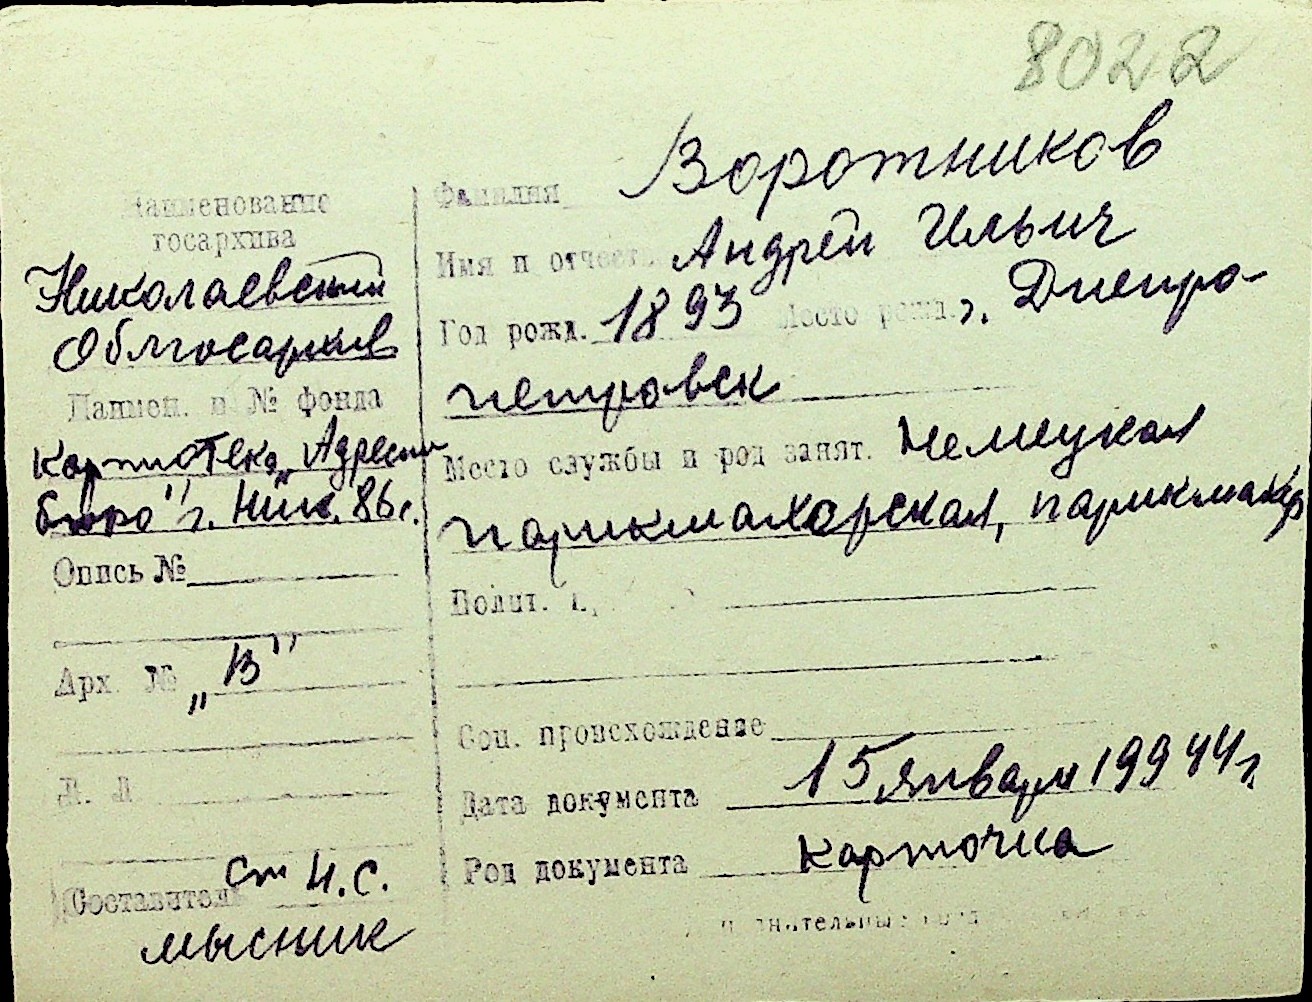 8022
Наименование
госархива
Николаевский
Облгосархив
Наимен. и № фонда
Картотека „Адресн
бюро" г. Ник. 86 г.
Опись №
Арх. № „В"
Л. Л
Составитель ст. н.с.
мысник
Фамилия Воротников
Имя и отчеств. Андрей Ильич
Год рожд. 1893 Место рожд. г. Днепро-
петровск
Место службы и род занят. Немецкая
парикмахорская, парикмахер
Полит.
Соц. происхождение
Дата документа 15 января 199 44 г.
Род документа карточка